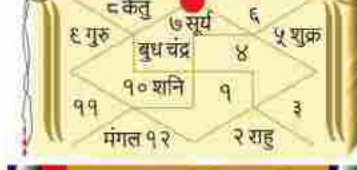 ८ केतु
७ सूर्य
६
९ गुरु
बुध चंद्र
४
५ शुक्र
१० शनि
१
११
३
मंगल १२
२ राहु